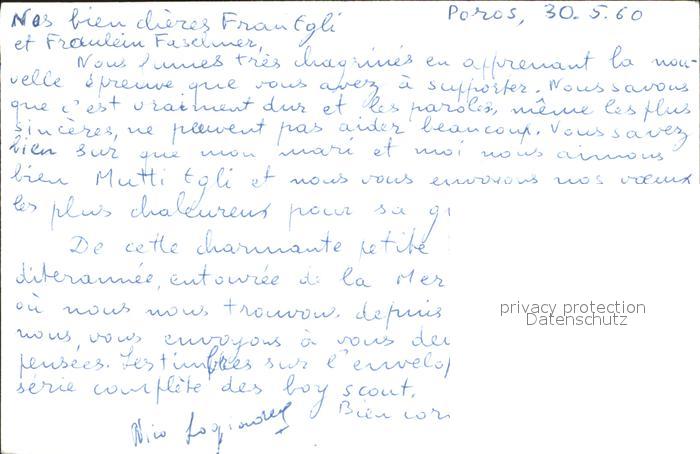 Nos bien chères Frau Egli
Poros, 30.5.60
et Fräulein
Nous fumes très chagrinés en apprenant la nou-
velle épreuve que vous avez à supporter. Nous savons
que c'est vraiment dur et les paroles, même les plus
sincères, ne peuvent pas aider beaucoup. Vous savez
bien sur que mon mari et moi nous aimons
bien Mutti Egli et nous vous envoyons nos vœux
les plus chaleureux pour sa
De cette charmante petite
diterannée, entourée de la Mer
où nous nous trouvons depuis
nous, vous envoyons à vous
pensées. Les timbres sur l'envelop
série complète des boy scout.
Bien cor
Nico
privacy protection
Datenschutz